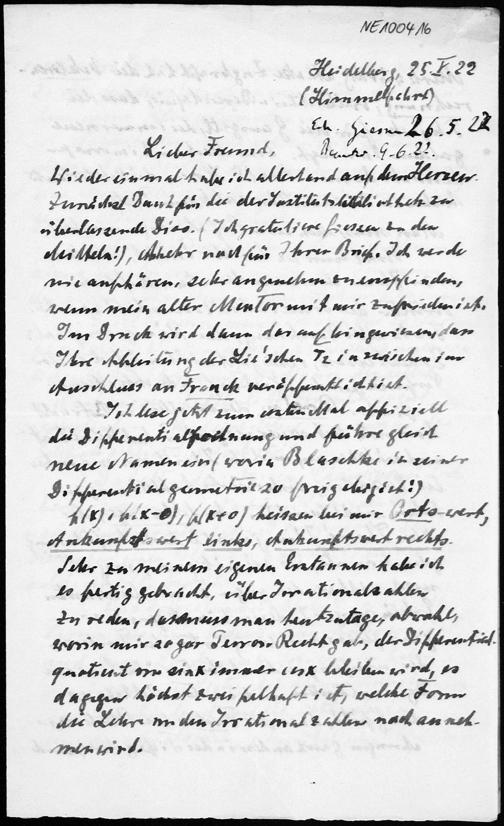 NE100416
Heidelberg, 25.V.22
(Himmelfahrt)
Giessen 26.5.22
9.6.22.
Lieber Freund,
Wieder einmal habe ich allerhand auf dem Herzen.
Zunächst Dank für die der Institutsbibliothek zu
überlassende Diss. (Ich gratuliere Giessen zu den
Mitteln!), Mehr noch für Ihren Brief. Ich werde
nie aufhören, sehr angenehm zu empfinden,
wenn mein alter Mentor mit mir zufrieden ist.
Im Druck wird dann darauf hingewiesen, dass
Ihre Ableitung der Lie'schen Tz inzwischen im
Anschluss an Franck veröffentlicht ist.
Ich lese jetzt zum ersten Mal offiziell
die Differentialrechnung und führe gleich
neue Namen ein (worin Blaschke in seiner
Differentialgeometrie so freigebig ist!)
h(x), h(x-0), h(x+0) heissen bei mir Ortswert,
Ankunftswert links, Ankunftswert rechts.
Sehr zu meinem eigenen Erstaunen habe ich
es fertig gebracht, über Irrationalzahlen
zu reden, das muss man heutzutage, obwohl,
worin mir sogar Perron Recht gab, der Differential-
quotient von sin x immer cos x bleiben wird, es
dagegen höchst zweifelhaft ist, welche Form
die Lehre von den Irrationalzahlen noch anneh-
men wird.